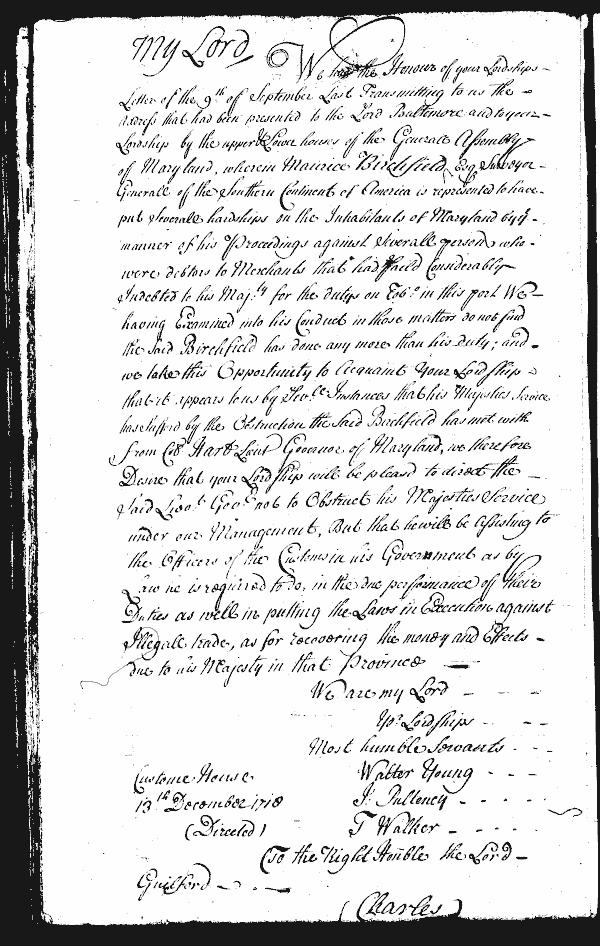 My Lord
We have the Honour of your Lordships
Letter of the 9th of September Last Transmitting to us the
Address that had been presented to the Lord Baltimore and to your
Lordship by the upper & Lower houses of the Generall Assembly
of Maryland, wherein Maurice Birchfield Esqr. Surveyor
Generall of the Southern Continent of America is represented to have
put Severall hardships on the Inhabitants of Maryland by ye.
manner of his Proceedings against Severall persons who
were debtors to Merchants that had faild Considerably
Indebted to his Maj.ty for the dutys on Tob.o in this port We
having Examined into his Conduct in those matters do not find
the said Birchfield has done any more than his duty; and
we take this Opportunity to Acquaint your Lordship
that it appears to us by Sev.ll Instances that his Majesties Service
has sufferd by the Obstruction the Said Birchfield has met with
from Col.o Hart Lieut Governor of Maryland, we therefore
Desire that your Lordship will be pleased to direct the
Said Lieut. Gov.r not to Obstruct his Majesties Service
under our Management, But that he will be assisting to
the Officers of the Customs in his Government as by
Law he is required to do, in the due performance of their
Duties as well in putting the Laws in Execution against
Illegall trade, as for recovering the money and Effects
due to his Majesty in that Province
We are my Lord
Yo.r Lordships
Most humble Servants
Custome House Walter Young
13th December 1718 J: Pulteney
(Directed) T Walker
(To the Right Honble the Lord
Guilford
(Charles)